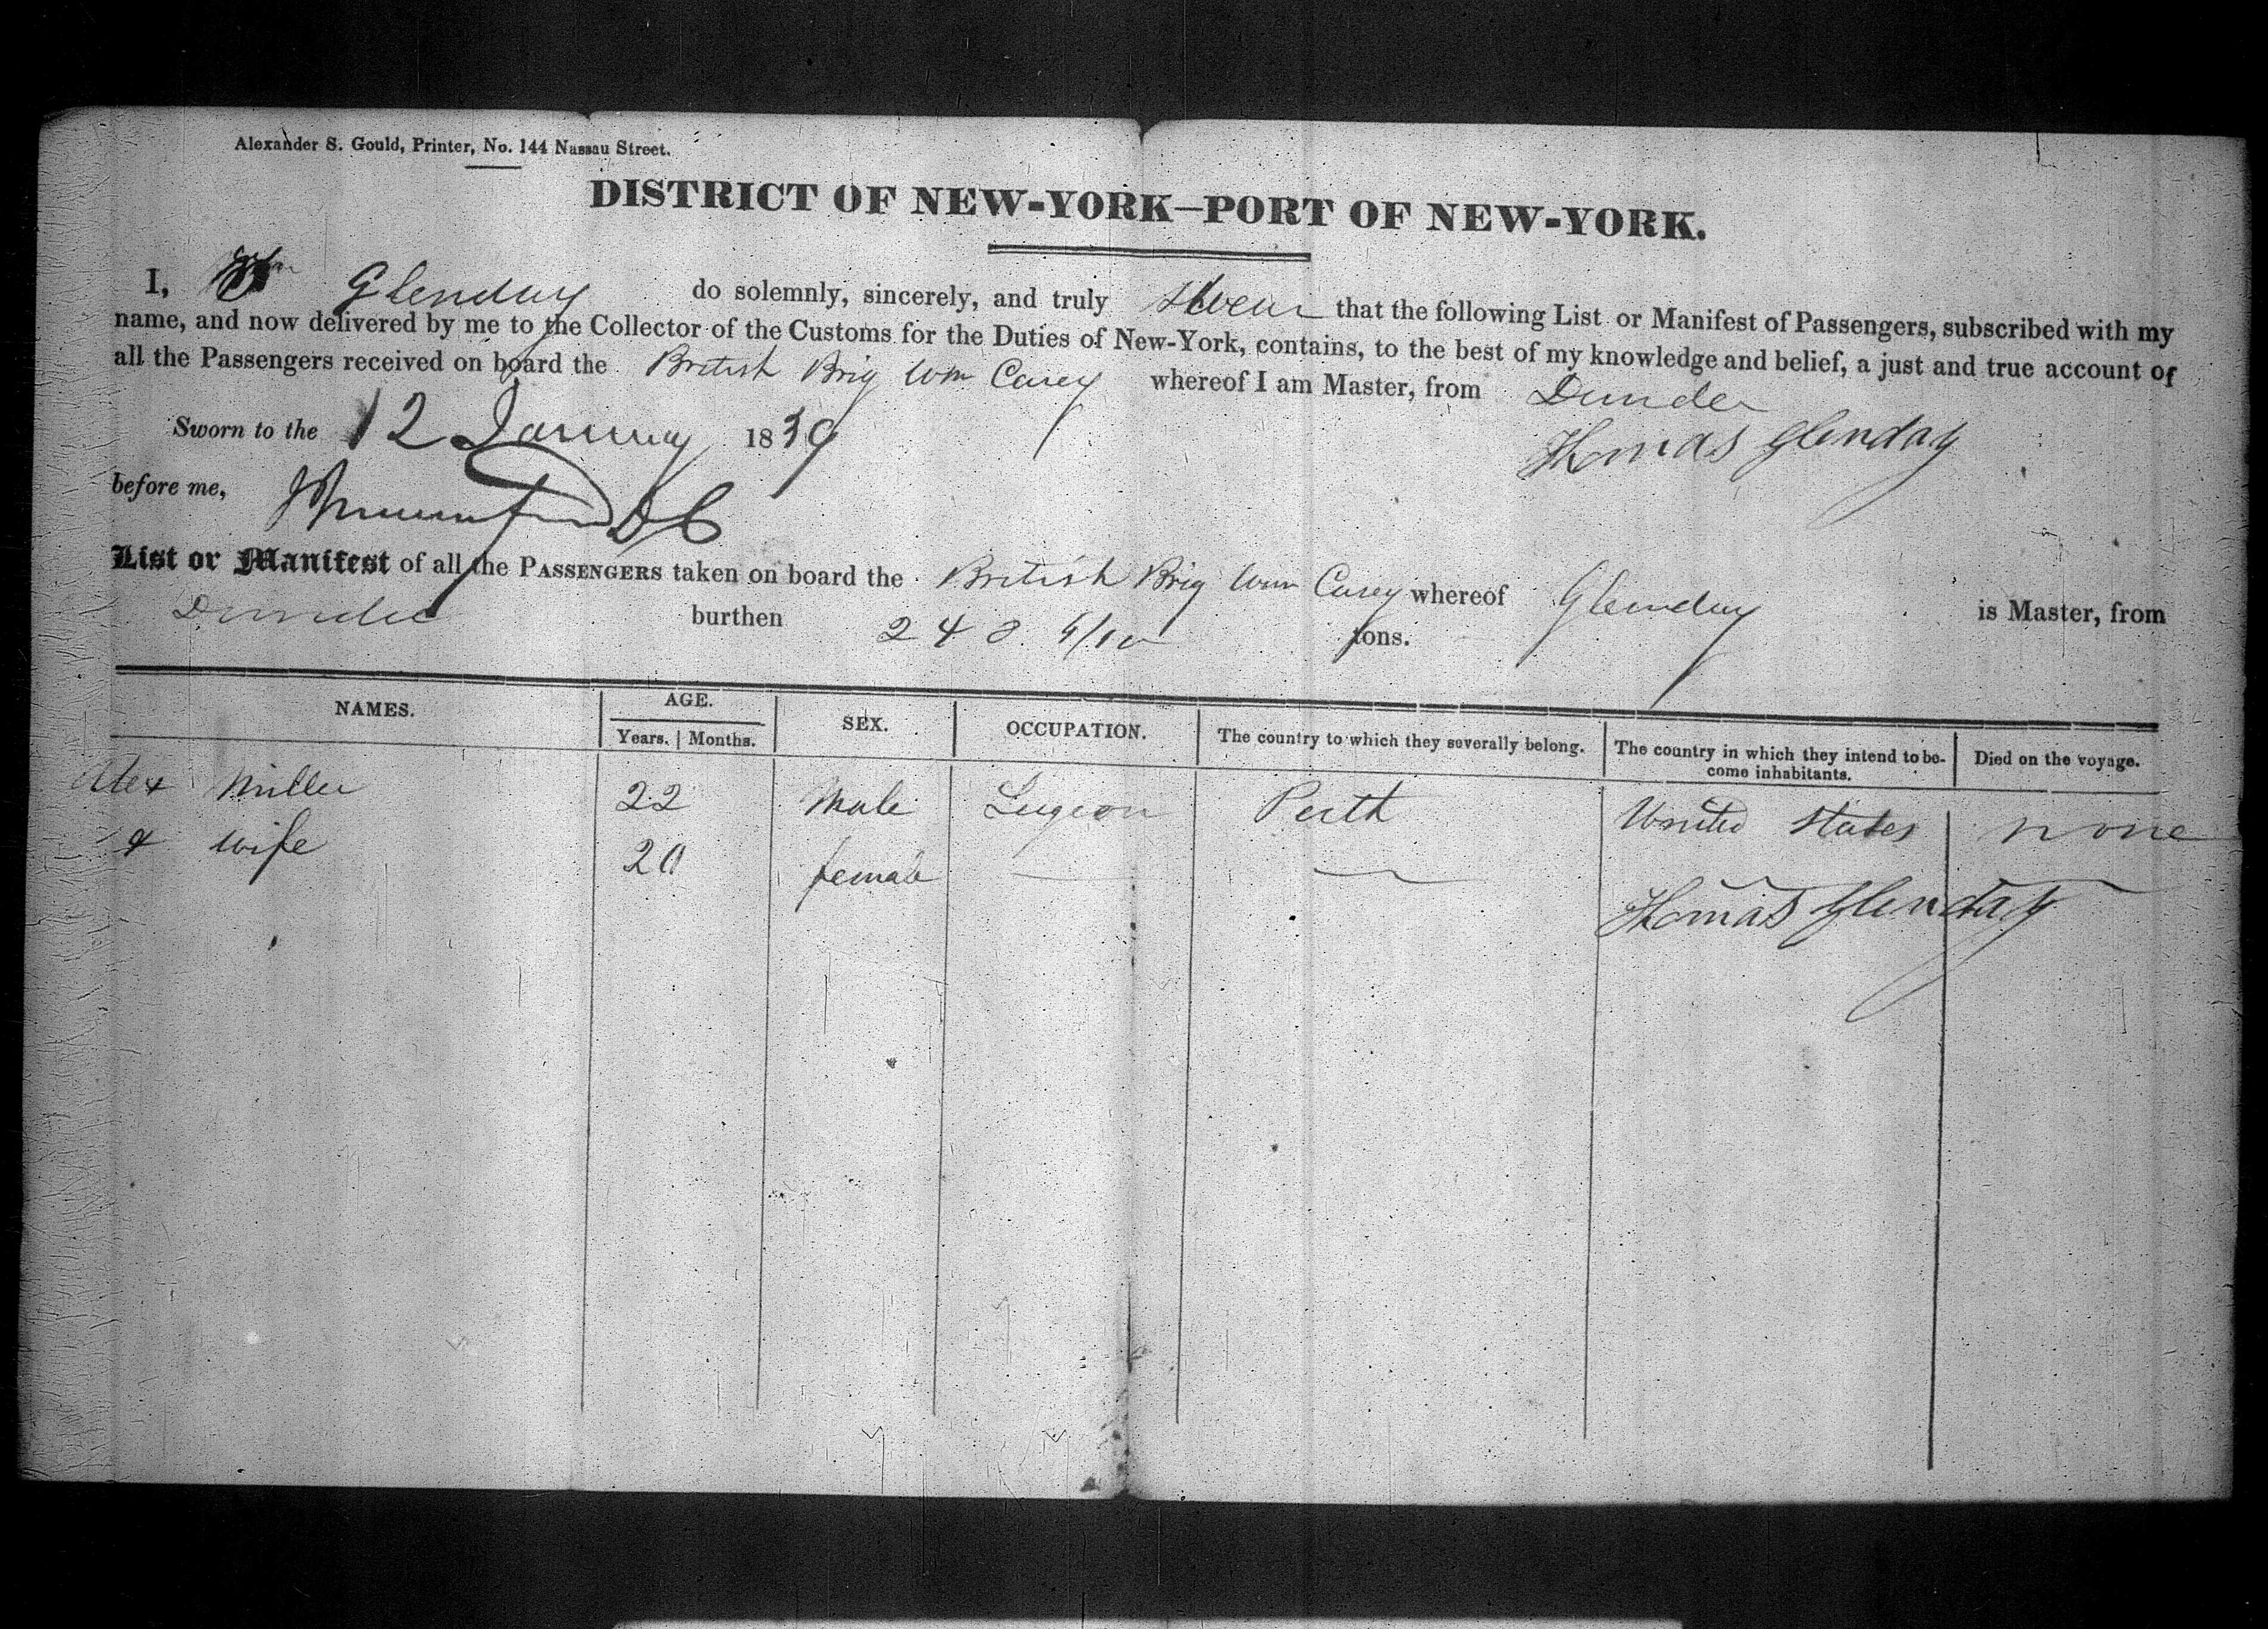 Alexander S. Gould, Printer, No. 144 Nassau Street.
DISTRICT OF NEW-YORK—PORT OF NEW-YORK.
I, Glenday do solemnly, sincerely, and truly swear that the following List or Manifest of Passengers, subscribed with my
name, and now delivered by me to the Collector of the Customs for the Duties of New-York, contains, to the best of my knowledge and belief, a just and true account of
all the Passengers received on board the British Brig Wm Carey whereof I am Master, from Dundee
Sworn to the 12 January 1839 Thomas Glenday
before me, DC
List or Manifest of all the PASSENGERS taken on board the British Brig Wm Carey whereof Glenday is Master, from
Dundee burthen 248 tons.
NAMES. AGE. SEX. OCCUPATION. The country to which they severally belong. The country in which they intend to be- Died on the voyage.
Years. Months. come inhabitants.
Alex Miller 22 Male Perth United States none
& wife 20 female
Thomas Glenday